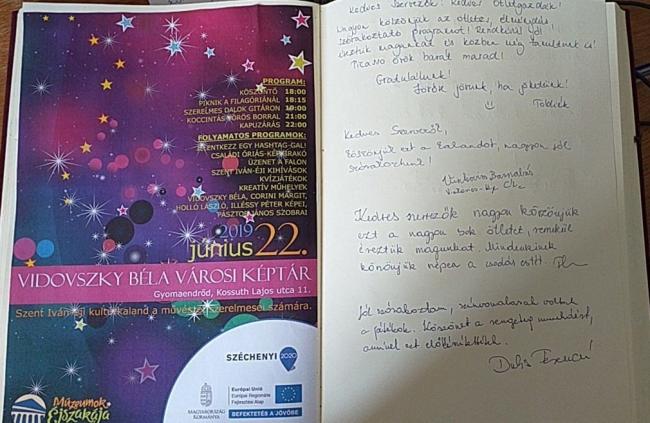 PROGRAM:
KÖSZÖNTŐ 18:00
PIKNIK A FILAGÓRIÁNÁL 18:15
SZERELMES DALOK GITÁRON 19:00
KOCCINTÁS VÖRÖS BORRAL 21:00
KAPUZÁRÁS 22:00
FOLYAMATOS PROGRAMOK:
JELENTKEZZ EGY HASHTAG-GAL!
CSALÁDI ÓRIÁS-KÉPKIRAKÓ
ÜZENET A FALON
SZENT IVÁN-ÉJI KIHÍVÁSOK
KVÍZJÁTÉKOK
KREATÍV MŰHELYEK
VIDOVSZKY BÉLA, CORINI MARGIT,
HOLLÓ LÁSZLÓ, ILLÉSSY PÉTER KÉPEI,
PÁSZTOR JÁNOS SZOBRAI
2019
június 22.
VIDOVSZKY BÉLA VÁROSI KÉPTÁR
Gyomaendrőd, Kossuth Lajos utca 11.
Szent Iván-éji kulturkaland a művészet szerelmesei számára.
SZÉCHENYI 2020
MAGYARORSZÁG
KORMÁNYA
Európai Unió
Európai Regionális
Fejlesztési Alap
BEFEKTETÉS A JÖVŐBE
Múzeumok
Éjszakája
Kedves Szervezők! Kedves Ötletgazdák!
Nagyon köszönjük az ötletes, élménydús,
szórakoztató programot! Rendkívül jól
éreztük magunkat és közben még tanultunk is!
Picasso örök barát marad!
Gratulálunk!
Jövőre jövünk, ha jöhetünk!
Kedves Szervezők,
Köszönjük ezt a kalandot, nagyon jól
szórakoztunk!
Kedves szervezők nagyon köszönjük
ezt a nagyon sok ötletet, remekül
éreztük magunkat. Mindenkinek
köszönjük szépen a csodás estét.
Jól szórakoztam, színvonalasak voltak
a játékok. Köszönet a rengeteg munkáért,
amivel ezt előkészítették.